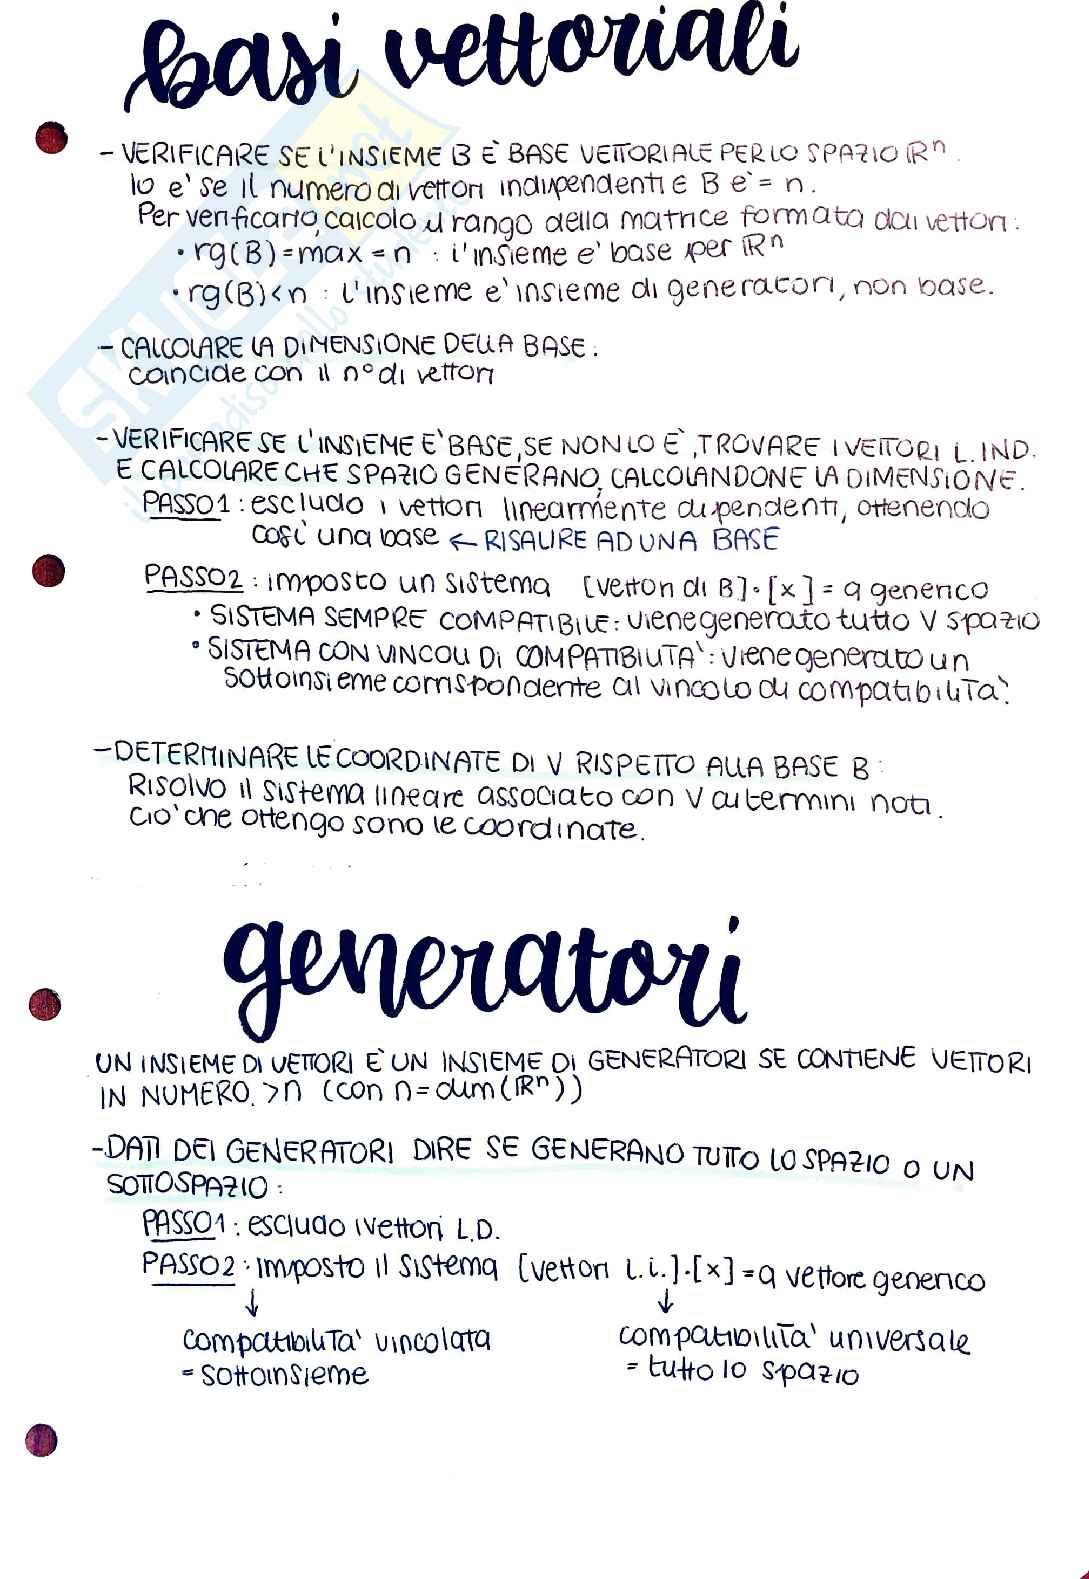 basi vettoriali
- VERIFICARE SE L'INSIEME B È BASE VETTORIALE PER LO SPAZIO ℝⁿ.
lo e' se il numero di vettori indipendenti ∈ B e' = n.
Per verificarlo, calcolo il rango della matrice formata dai vettori:
• rg(B) = max = n : l'insieme e' base per ℝⁿ
• rg(B) < n : l'insieme e' insieme di generatori, non base.
- CALCOLARE LA DIMENSIONE DELLA BASE:
coincide con il n° di vettori
- VERIFICARE SE L'INSIEME E' BASE, SE NON LO È, TROVARE I VETTORI L. IND.
E CALCOLARE CHE SPAZIO GENERANO, CALCOLANDONE LA DIMENSIONE.
PASSO 1 : escludo i vettori linearmente dipendenti, ottenendo
cosi' una base ← RISALIRE AD UNA BASE
PASSO 2 : imposto un sistema [vettori di B]·[x] = a generico
• SISTEMA SEMPRE COMPATIBILE: viene generato tutto V spazio
• SISTEMA CON VINCOLI DI COMPATIBILITA': viene generato un
sottoinsieme corrispondente al vincolo di compatibilita'.
- DETERMINARE LE COORDINATE DI V RISPETTO ALLA BASE B:
Risolvo il sistema lineare associato con V ai termini noti.
Cio' che ottengo sono le coordinate.
generatori
UN INSIEME DI VETTORI E' UN INSIEME DI GENERATORI SE CONTIENE VETTORI
IN NUMERO > n (con n = dim(ℝⁿ))
- DATI DEI GENERATORI DIRE SE GENERANO TUTTO LO SPAZIO O UN
SOTTOSPAZIO:
PASSO 1 : escludo i vettori L.D.
PASSO 2 : imposto il sistema [vettori L.i.]·[x] = a vettore generico
↓ ↓
compatibilita' vincolata compatibilita' universale
= sottoinsieme = tutto lo spazio